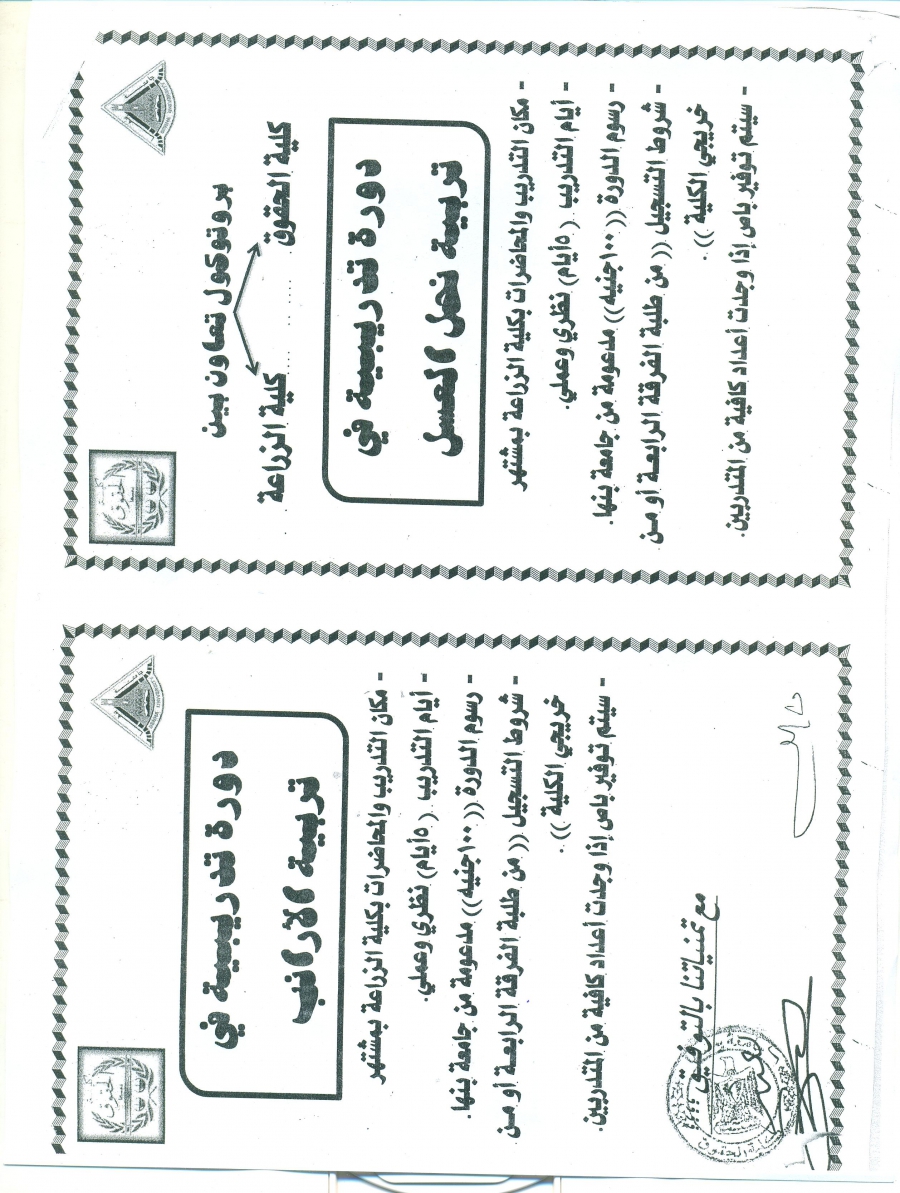 بروتوكول تعاون بين
كلية الزراعة
كلية الحقوق
دورة تدريبية في
تربية نحل العسل
- مكان التدريب والمحاضرات بكلية الزراعة بمشتهر
- أيام التدريب (٥ أيام) نظري وعملي.
- رسوم الدورة ((١٠٠جنيه)) مدعومة من جامعة بنها.
- شروط التسجيل (( من طلبة الفرقة الرابعة أو من
خريجي الكلية )).
- سيتم توفير باص إذا وجدت أعداد كافية من المتدربين.
دورة تدريبية في
تربية الأرانب
- مكان التدريب والمحاضرات بكلية الزراعة بمشتهر
- أيام التدريب (٥ أيام) نظري وعملي.
- رسوم الدورة ((١٠٠جنيه)) مدعومة من جامعة بنها.
- شروط التسجيل (( من طلبة الفرقة الرابعة أو من
خريجي الكلية )).
- سيتم توفير باص إذا وجدت أعداد كافية من المتدربين.
مع تمنياتنا بالتوفيق....
الحقوق
الحقوق
كلية الحقوق